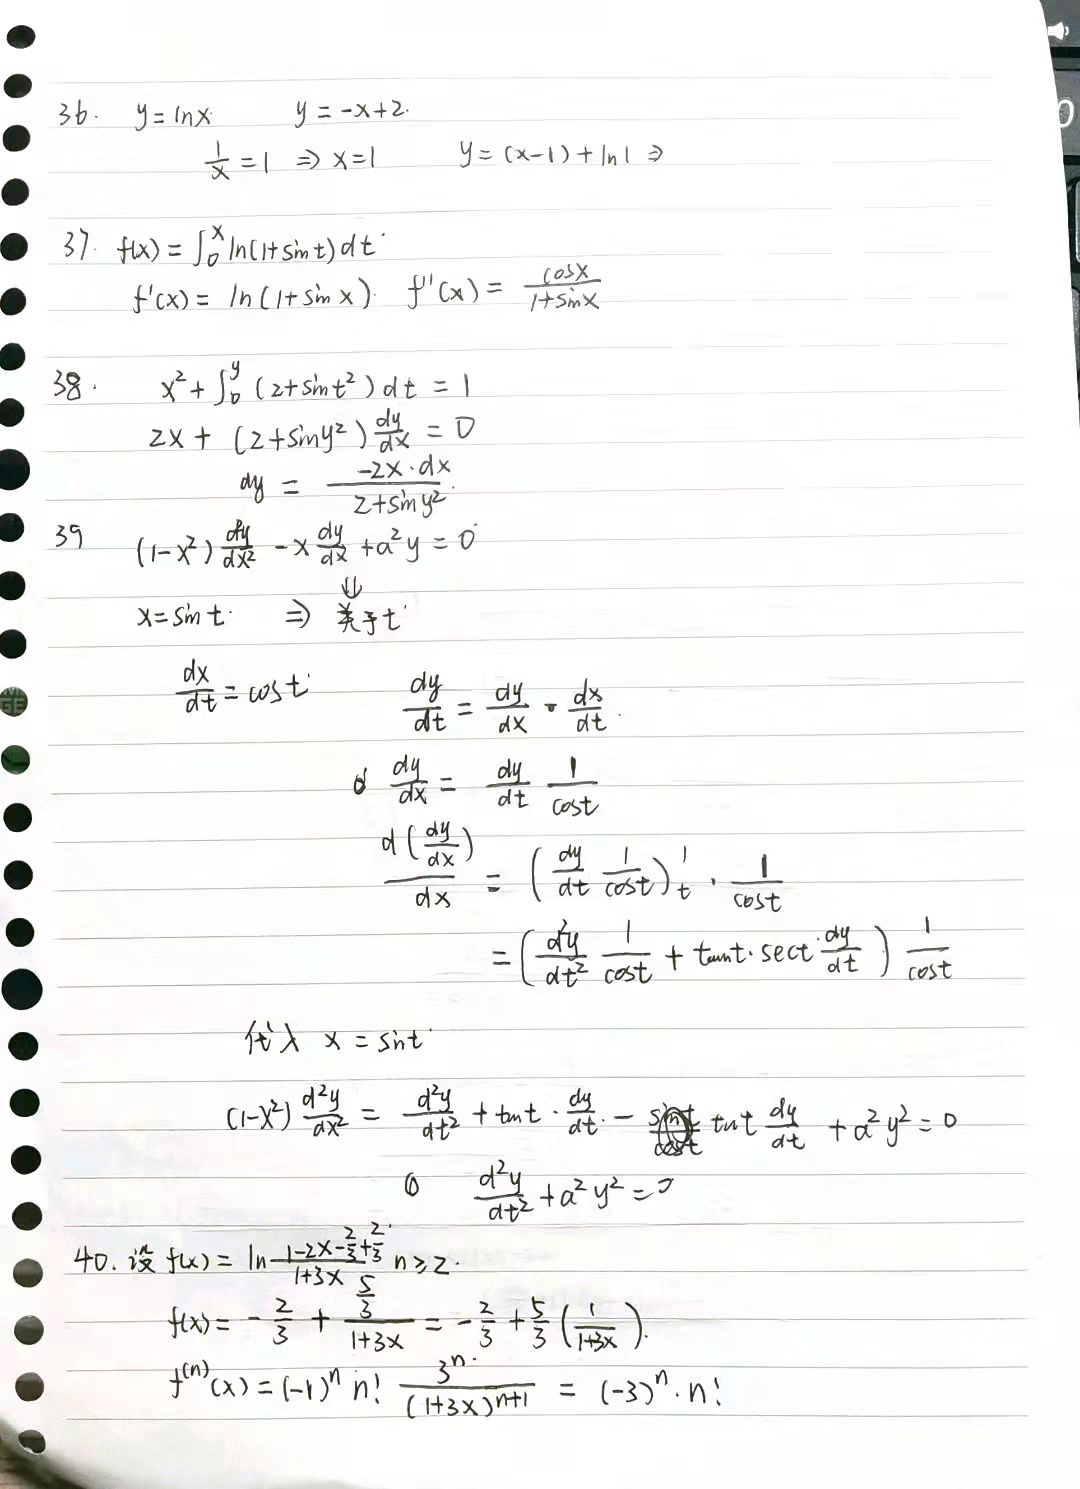 36. y = lnx y = -x+2.
1/x = 1 ⇒ x=1 y = (x-1) + ln1 ⇒
37. f(x) = ∫_0^x ln(1+sint) dt
f'(x) = ln(1+sinx). f''(x) = cosx/(1+sinx)
38. x² + ∫_0^y (2+sint²) dt = 1
2x + (2+siny²) dy/dx = 0
dy = (-2x·dx)/(2+siny²)
39 (1-x²) d²y/dx² - x dy/dx + a²y = 0
⇓
x = sint. ⇒ 关于t
dx/dt = cost dy/dt = dy/dx · dx/dt.
dy/dx = dy/dt 1/cost
d(dy/dx)/dx = (dy/dt 1/cost)'_t · 1/cost
= (d²y/dt² 1/cost + tant·sect·dy/dt) 1/cost
代入 x = sint
(1-x²) d²y/dx² = d²y/dt² + tant · dy/dt - tant dy/dt + a²y² = 0
d²y/dt² + a²y² = 0
40. 设 f(x) = ln (1-2x-2/3+2/3)/(1+3x) n≥2.
f(x) = -2/3 + (5/3)/(1+3x) = -2/3 + 5/3 (1/(1+3x)).
f^(n)(x) = (-1)^n n! 3^n/(1+3x)^(n+1) = (-3)^n · n!